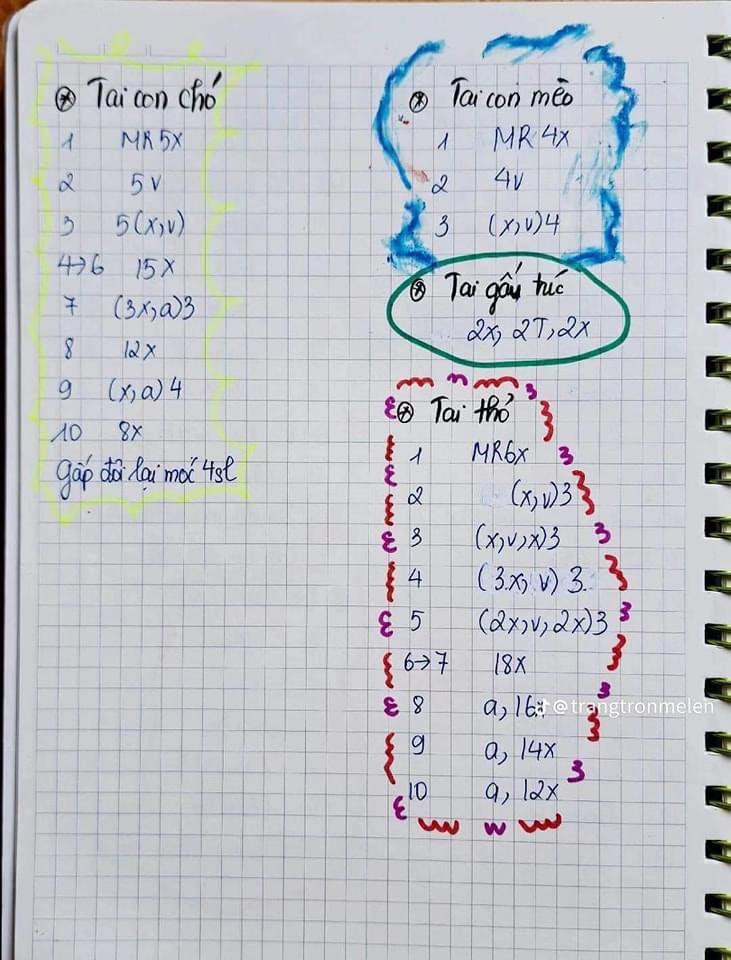 ⊛ Tai con chó
1 MR 5x
2 5v
3 5(x,v)
4→6 15x
7 (3x,a)3
8 12x
9 (x,a)4
10 8x
Gấp đôi lại móc 4sl
⊛ Tai con mèo
1 MR 4x
2 4v
3 (x,v)4
⊛ Tai gấu trúc
2x, 2T, 2x
⊛ Tai thỏ
1 MR6x
2 (x,v)3
3 (x,v,x)3
4 (3x, v) 3
5 (2x,v,2x)3
6→7 18x
8 a, 16x
@trangtronmelen
9 a, 14x
10 a, 12x